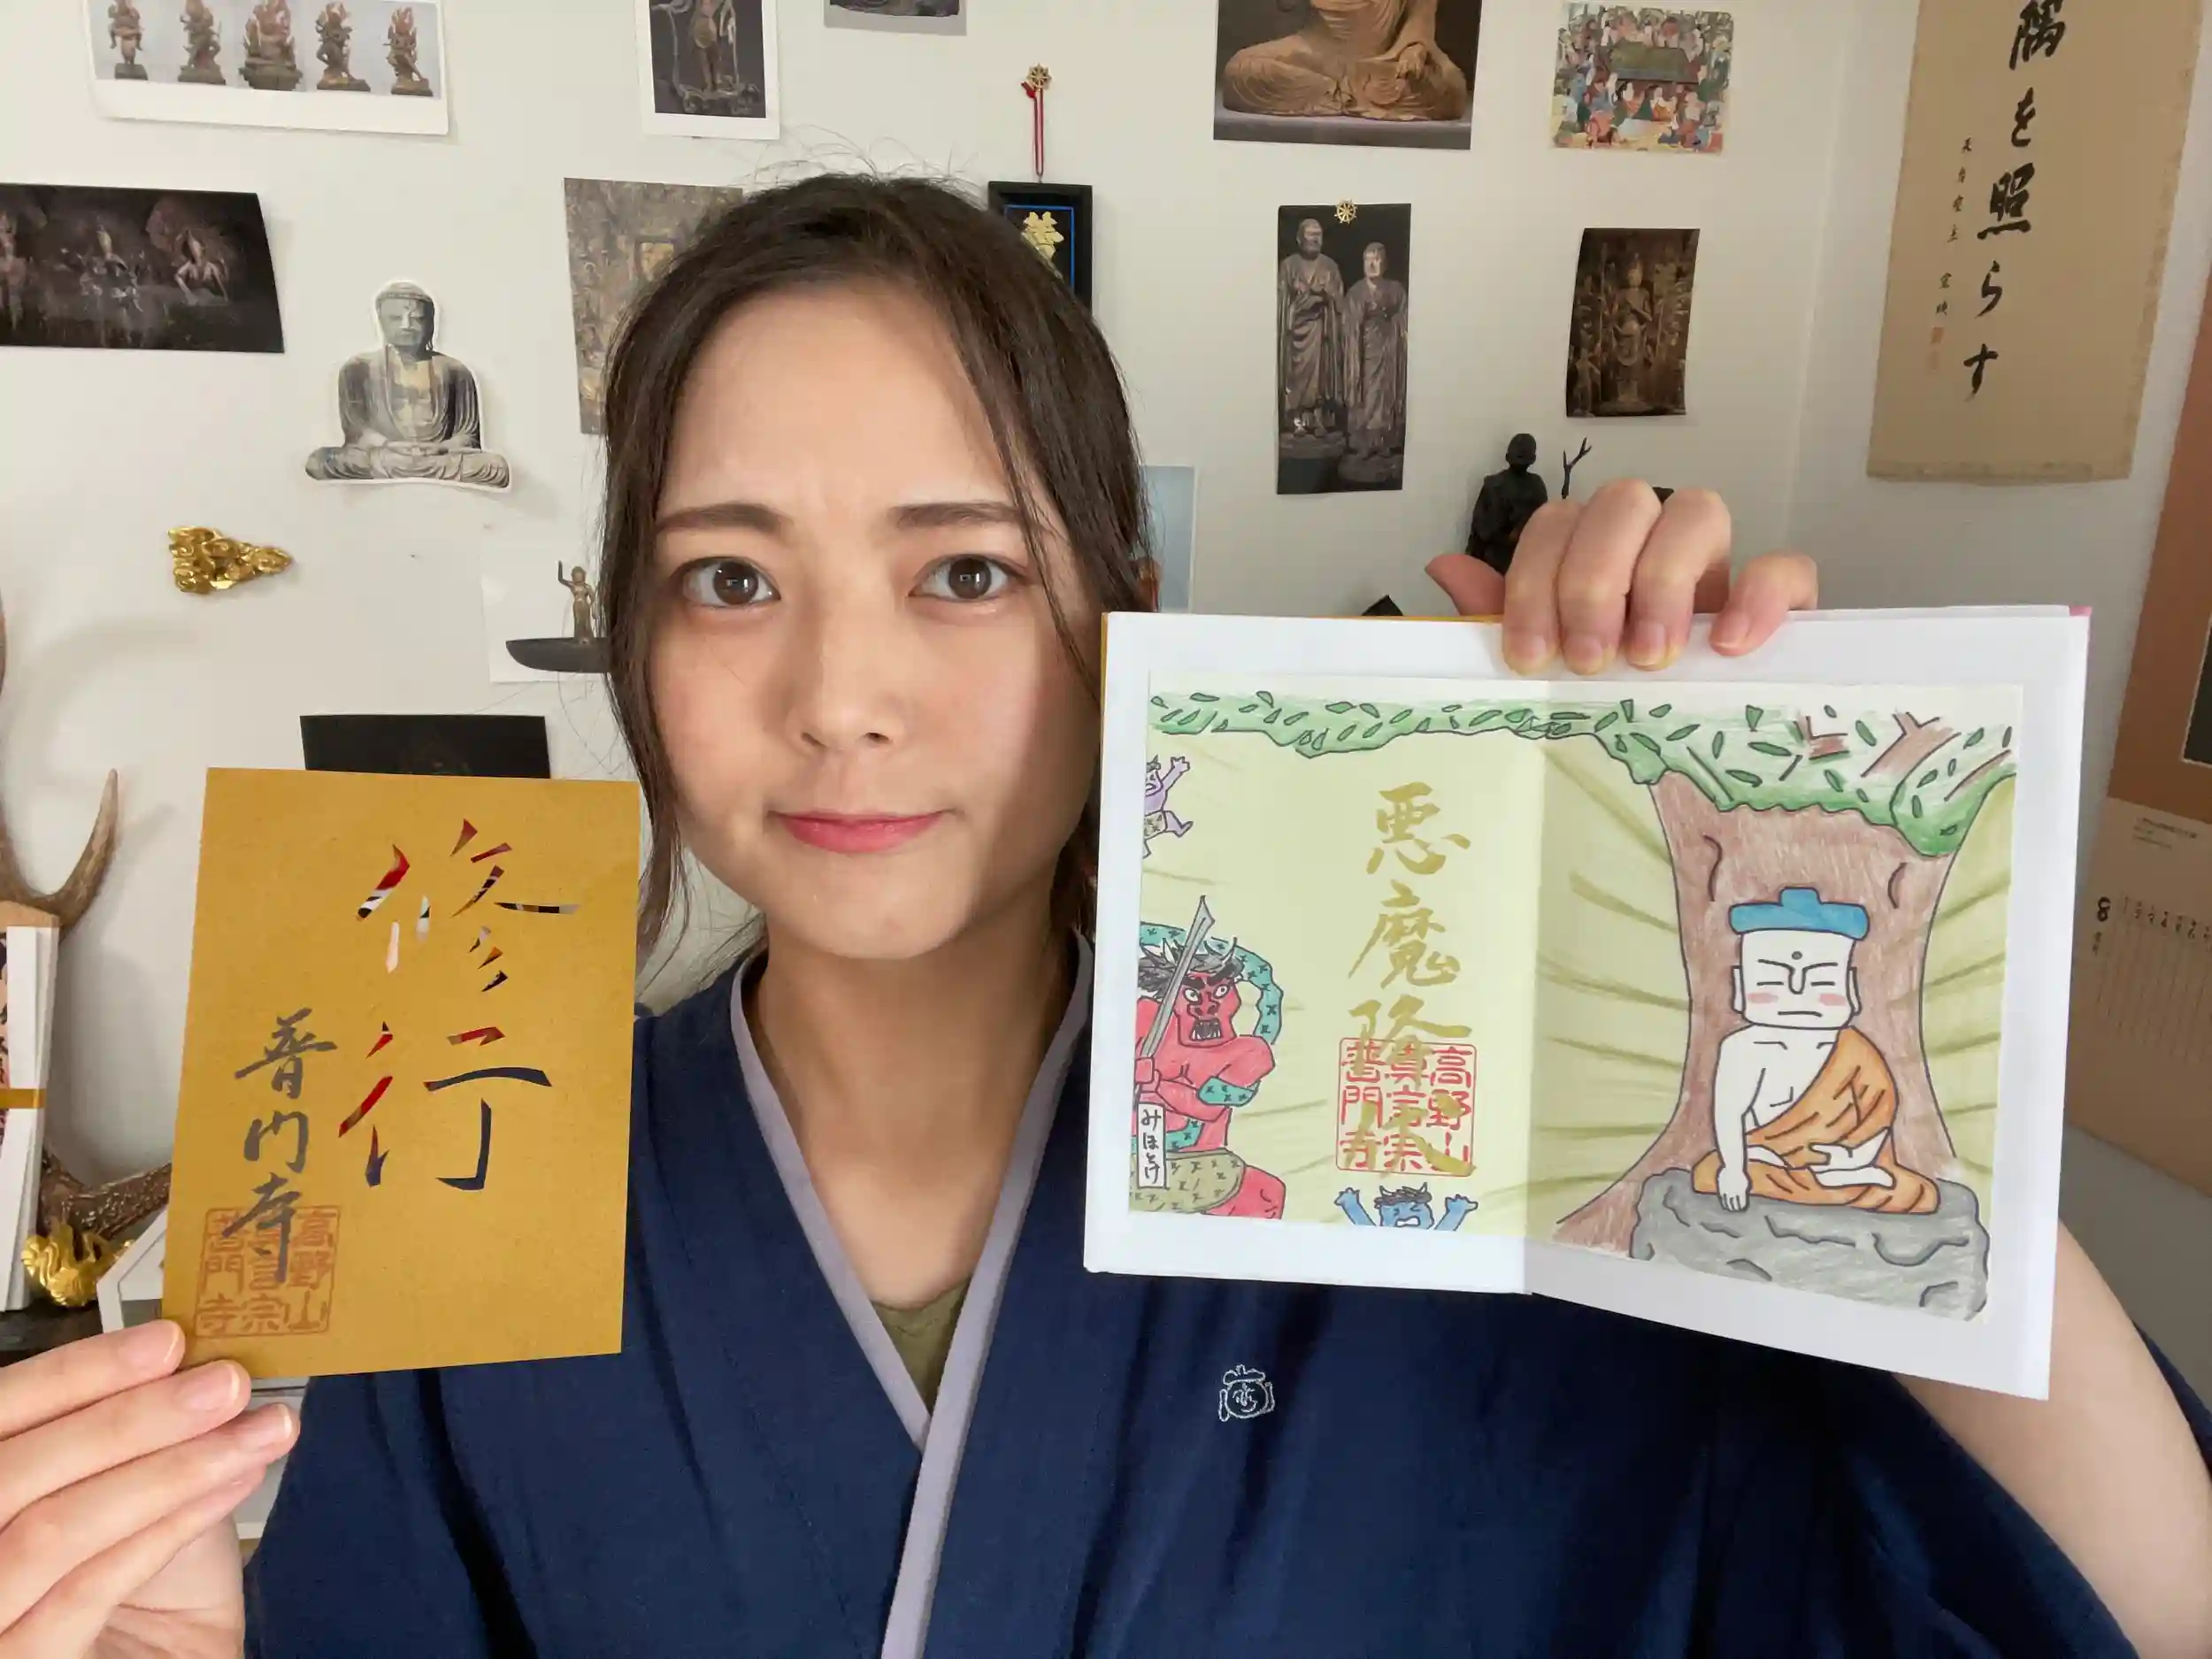 隅を照らす
修行
普門寺
高野山
真言宗
普門寺
悪魔降伏
高野山
真言宗
普門寺
みほとけ
8